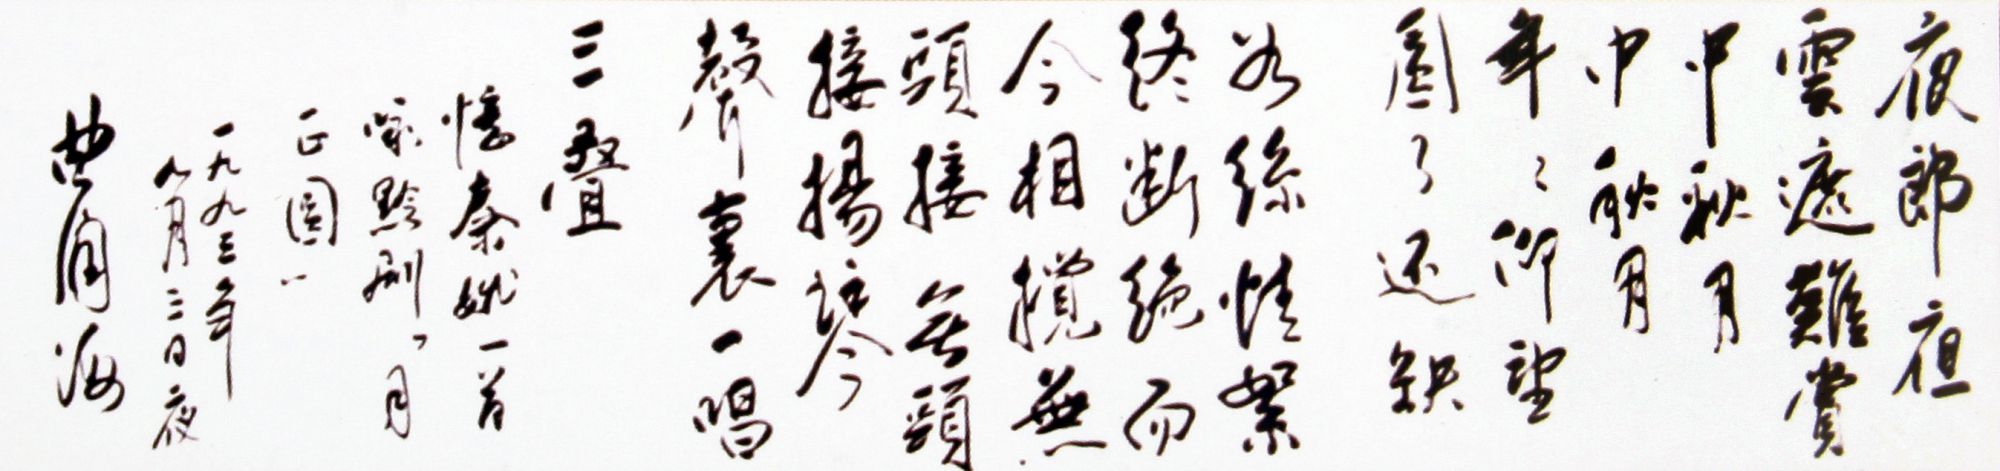 夜郎亱
雲遮難賞
中秋月
中秋月
年〻仰望
圓了还缺
絲情絮
終斷絕而
今相攪無
頭接無頭
接揚琴
聲裏一唱
三疊
憶秦娥一首
黔 月
正圓
一九九三年
月三日夜
曲润海